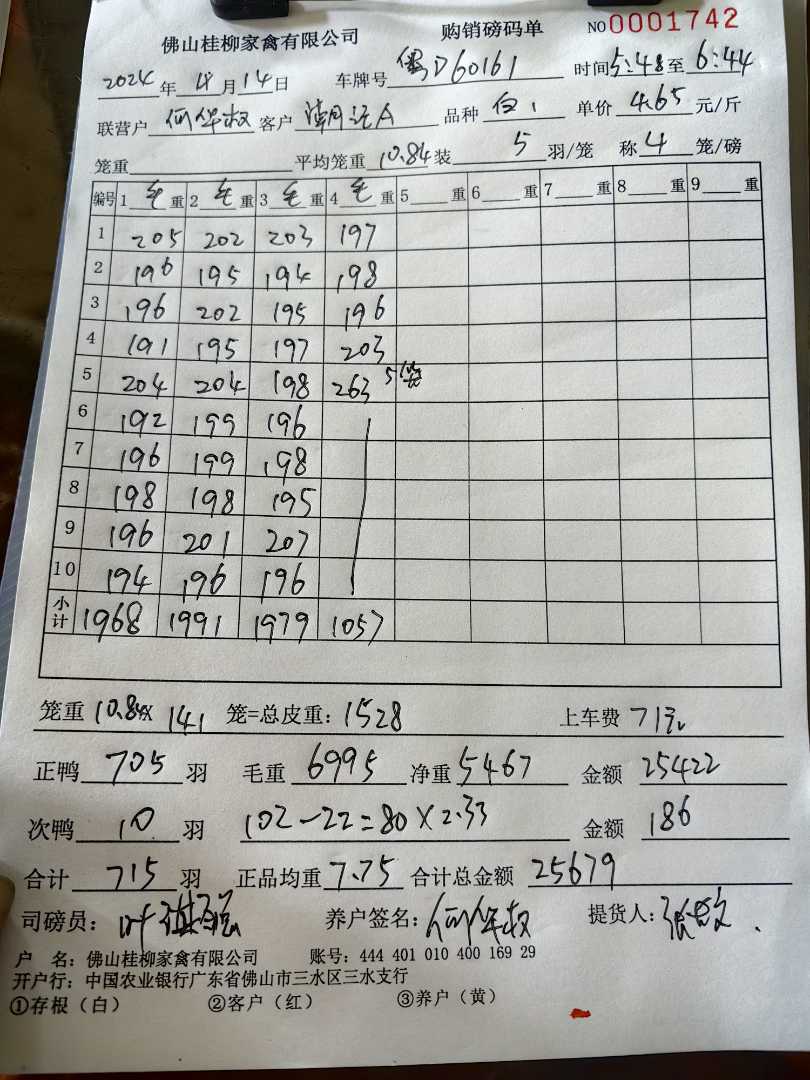 佛山桂柳家禽有限公司 购销磅码单 NO 0001742
2024年 4月14日 车牌号 粤D60161 时间5:48至6:44
联营户 何年权 客户 A 品种 白1 单价 4.65 元/斤
笼重 平均笼重 10.84 装 5 羽/笼 称 4 笼/磅
编号 1 毛 重 2 毛 重 3 毛 重 4 毛 重 5 重 6 重 7 重 8 重 9 重
1 205 202 203 197
2 196 195 194 198
3 196 202 195 196
4 191 195 197 203
5 204 204 198 263 5笼
6 192 199 196
7 196 199 198
8 198 198 195
9 196 201 207
10 194 196 196
小计 1968 1991 1979 1057
笼重 10.84x 141 笼=总皮重: 1528 上车费 71元
正鸭 705 羽 毛重 6995 净重 5467 金额 25422
次鸭 10 羽 102-22=80×2.33 金额 186
合计 715 羽 正品均重 7.75 合计总金额 25679
司磅员: 叶 养户签名: 何年权 提货人: 张
户 名: 佛山桂柳家禽有限公司 账号: 444 401 010 400 169 29
开户行: 中国农业银行广东省佛山市三水区三水支行
①存根（白） ②客户（红） ③养户（黄）